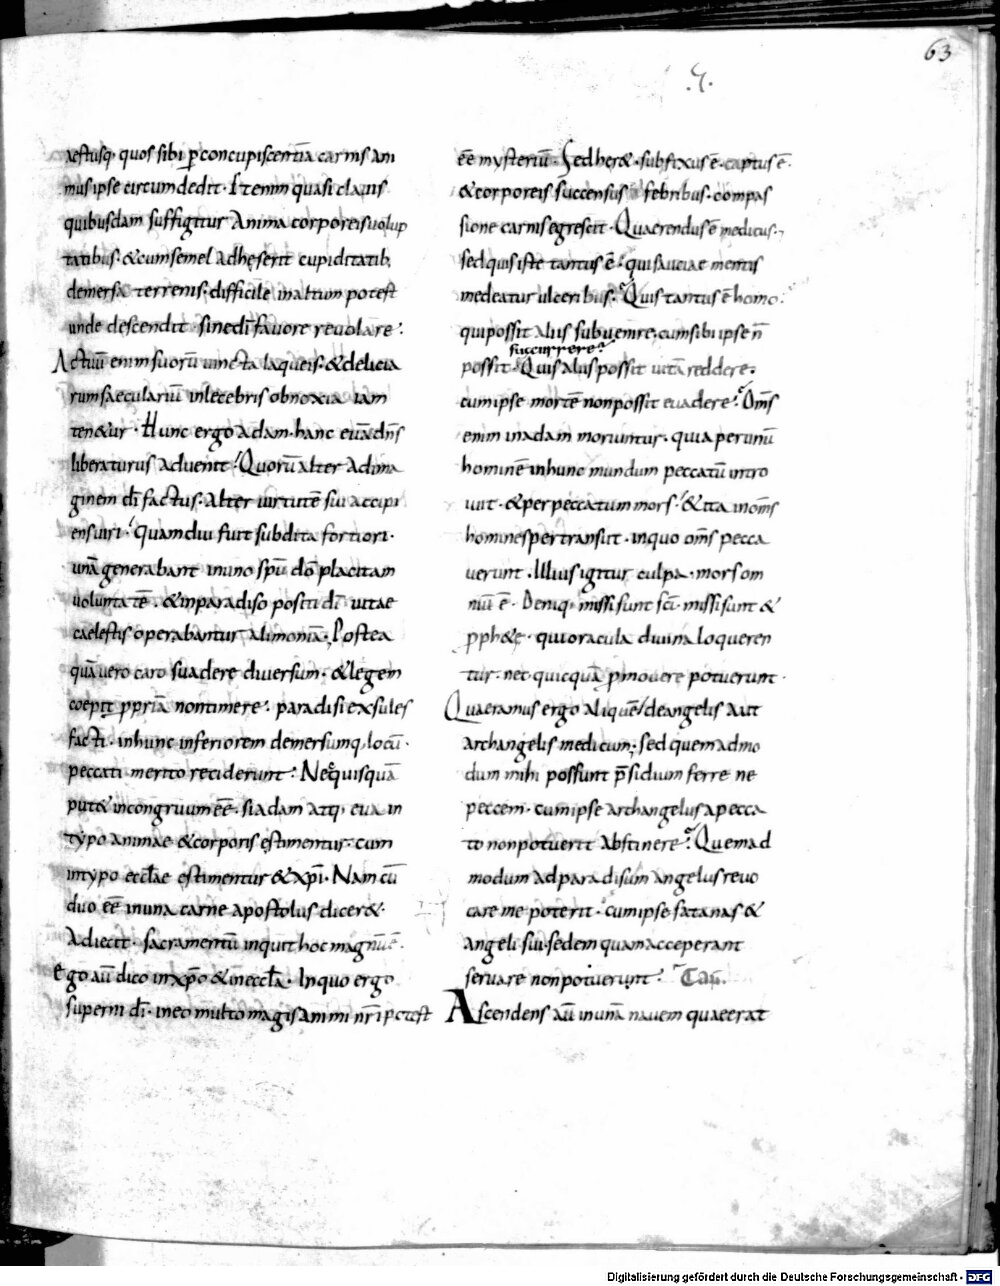 63
.5.
aestusq· quos sibi p̄ concupiscentia carnis ani
mus ipse circumdedit · Etenim quasi clauis
quibusdam suffigitur Anima corporeis uolup
tatibus· & cum semel adheserit cupiditatib·
demersa terrenis· difficile in altum potest
unde descendit· sine dī fauore reuolare·
Actuū enim suorū uincta laqueis· & delicia
rum saeculariū inlecebris obnoxia iam
ten&ur · Hunc ergo adam· hanc euā dn̄s
liberaturus aduenit· Quorū alter ad ima
ginem dī factus· alter uirtutē sui accipi
ens uiri · Quamdiu fuit subdita fortiori·
unā generabant in uno spū dō placitam
uoluntatē· & in paradiso positi dī uitae
caelestis operabantur alimoniā· Postea
quā uero caro suadere diuersum· & legem
coepit ppriā non timere· paradisi exsules
facti· in hunc inferiorem demersumq· locū·
peccati merito reciderunt· Ne quisquā
put& incongruum eē· si adam atq· eua in
typo animae & corporis estimentur· cum
in typo eccłae estimentur & xp̄i· Nam cū
duo eē in una carne apostolus dicer&·
Adiecit· sacramentū inquit hoc magnū ē·
ego aū dico in xp̄o & in eccła· In quo ergo
superni dī· in eo multo magis animi nr̄i potest
eē mysteriū· Sed her&· subfixus ē· captus ē·
& corporeis succensus febribus· compas
sione carnis egrescit· Quaerendus ē medicus·
sed quis iste tantus ē· qui sauciae mentis
medeatur ulceribus· Quis tantus ē homo·
qui possit aliis subuenire· cum sibi ipse n̄
succurrere·
possit· Quis aliis possit uitā reddere·
cum ipse mortē non possit euadere· Om̄s
enim in adam moriuntur· quia per unū
hominē in hunc mundum peccatū intro
uiit· & per peccatum mors· & ita in om̄s
homines pertransiit· in quo om̄s pecca
uerunt · Illius igitur culpa· mors om
niū ē· Deniq· missi sunt sc̄i· missi sunt &
pph&e· qui oracula diuina loqueren
tur· nec quicquā pmouere potuerunt·
Quaeramus ergo aliquē de angelis aut
archangelis medicum· sed quemadmo
dum mihi possunt p̄sidium ferre ne
peccem· cum ipse archangelus a pecca
to non potuerit abstinere· Quemad
modum ad paradisum angelus reuo
care me poterit· cum ipse satanas &
angeli sui sedem quam acceperant
seruare non potuerunt· Cap̄.
Ascendens aū in unā nauem quae erat
Digitalisierung gefördert durch die Deutsche Forschungsgemeinschaft - DFG